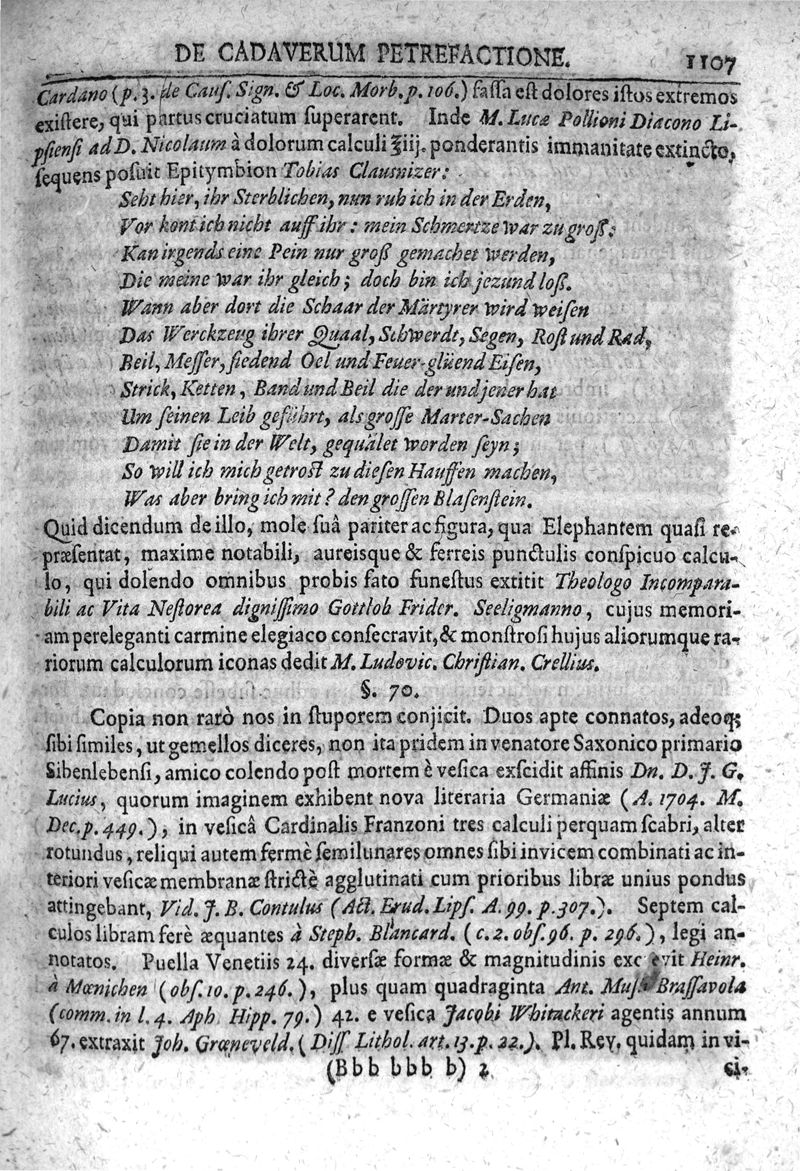 DE CADAVERUM PETREFACTIONE. 1107
Cardano (p. 3. de Cauſ. Sign. & Loc. Morb. p. 106.) faſſa eſt dolores iſtos extremos
exiſtere, qui partus cruciatum ſuperarent. Inde M. Lucæ Pollioni Diacono Li-
pſienſi ad D. Nicolaum à dolorum calculi ℥iij. ponderantis immanitate extincto,
ſequens poſuit Epitymbion Tobias Clausnizer:
Seht hier, ihr Sterblichen, nun ruh ich in der Erden,
Vor kont ich nicht auff ihr: mein Schmertze war zu groß;
Kan irgends eine Pein nur groß gemachet werden,
Die meine war ihr gleich; doch bin ich jezund loß.
Wann aber dort die Schaar der Märtyrer wird weiſen
Das Werckzeug ihrer Quaal, Schwerdt, Segen, Roſt und Rad,
Beil, Meſſer, ſiedend Oel und Feuer-glüend Eiſen,
Strick, Ketten, Band und Beil die der und jener hat
Um ſeinen Leib geführt, als groſſe Marter-Sachen
Damit ſie in der Welt, gequälet worden ſeyn;
So will ich mich getroſt zu dieſen Hauffen machen,
Was aber bring ich mit? den groſſen Blaſenſtein.
Quid dicendum de illo, mole ſuâ pariter ac figura, qua Elephantem quaſi re-
præſentat, maxime notabili, aureisque & ferreis punctulis conſpicuo calcu-
lo, qui dolendo omnibus probis fato funeſtus extitit Theologo Incompara-
bili ac Vita Neſtorea digniſſimo Gottlob Frider. Seeligmanno, cujus memori-
am pereleganti carmine elegiaco conſecravit, & monſtroſi hujus aliorumque ra-
riorum calculorum iconas dedit M. Ludovic. Chriſtian. Crellius.
§. 70.
Copia non rarò nos in ſtuporem conjicit. Duos apte connatos, adeoq;
ſibi ſimiles, ut gemellos diceres, non ita pridem in venatore Saxonico primario
Sibenlebenſi, amico colendo poſt mortem è veſica exſcidit affinis Dn. D. J. G.
Lucius, quorum imaginem exhibent nova literaria Germaniæ (A. 1704. M.
Dec. p. 449.), in veſicâ Cardinalis Franzoni tres calculi perquam ſcabri, alter
rotundus, reliqui autem fermè ſemilunares omnes ſibi invicem combinati ac in-
teriori veſicæ membranæ ſtrictè agglutinati cum prioribus libræ unius pondus
attingebant, Vid. J. B. Contulus (Act. Erud. Lipſ. A. 99. p. 307.). Septem cal-
culos libram ferè æquantes à Steph. Blancard. (c. 2. obſ. 96. p. 296.), legi an-
notatos. Puella Venetiis 24. diverſæ formæ & magnitudinis exc evit Heinr.
à Mœnichen (obſ. 10. p. 246.), plus quam quadraginta Ant. Muſ. Braſſavola
(comm. in l. 4. Aph Hipp. 79.) 42. e veſica Jacobi Whitackeri agentis annum
67. extraxit Joh. Grœneveld. (Diſſ Lithol. art. 13. p. 22.). Pl. Rev. quidam in vi-
(Bbb bbb b) 2 ci-